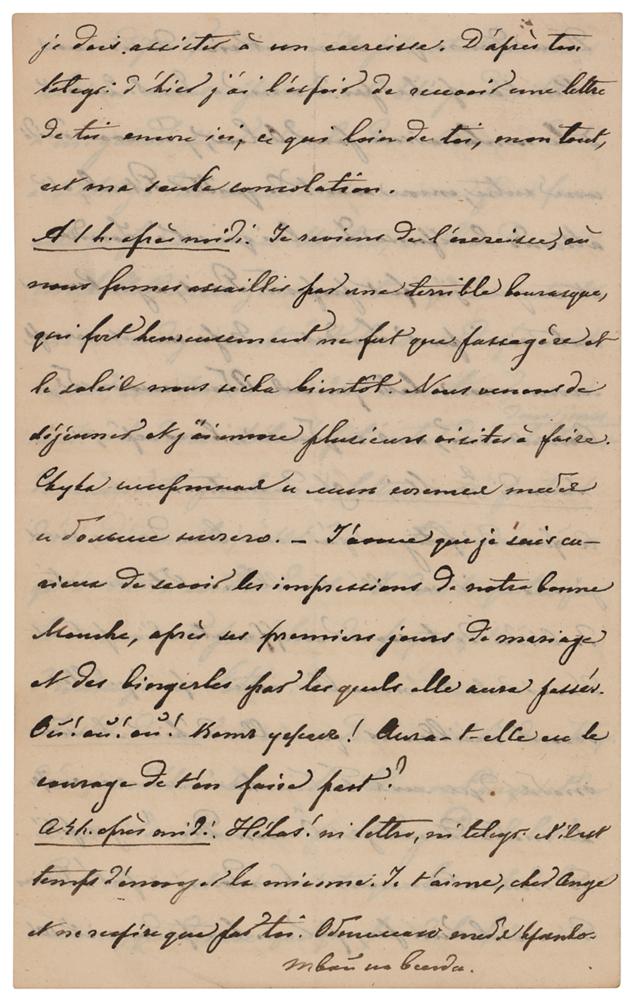 je dois assister à un exercisse. D'après ton
telegr. d'hier j'ai l'espoir de recevoir une lettre
de toi encore ici, ce qui loin de toi, mon tout,
est ma seule consolation.
A 1 h. après midi. Je reviens de l'exercisse, où
nous fumes assaillis par une terrible bourasque,
qui fort heureusement ne fut que passagère et
le soleil nous sècha bientôt. Nous venons de
déjeuner et j'ai encore plusieurs visites à faire.
Скука нестерпимая и мнѣ тебя
и больше ничего. — J'avoue que je suis cu-
rieux de savoir les impressions de notre bonne
Mouche, après ses premiers jours de mariage
et des bingerles par lesquels elle aura passés.
Oŭ! oŭ! oŭ! Aura-t-elle eu le
courage de t'en faire part?
A 4 h. après midi. Hélas! ni lettre, ni telegr. Il est
temps d'envoyer la mienne. Je t'aime, cher Ange
et ne respire que par toi. Обнимаю тебя крѣпко.
Твой на всегда.